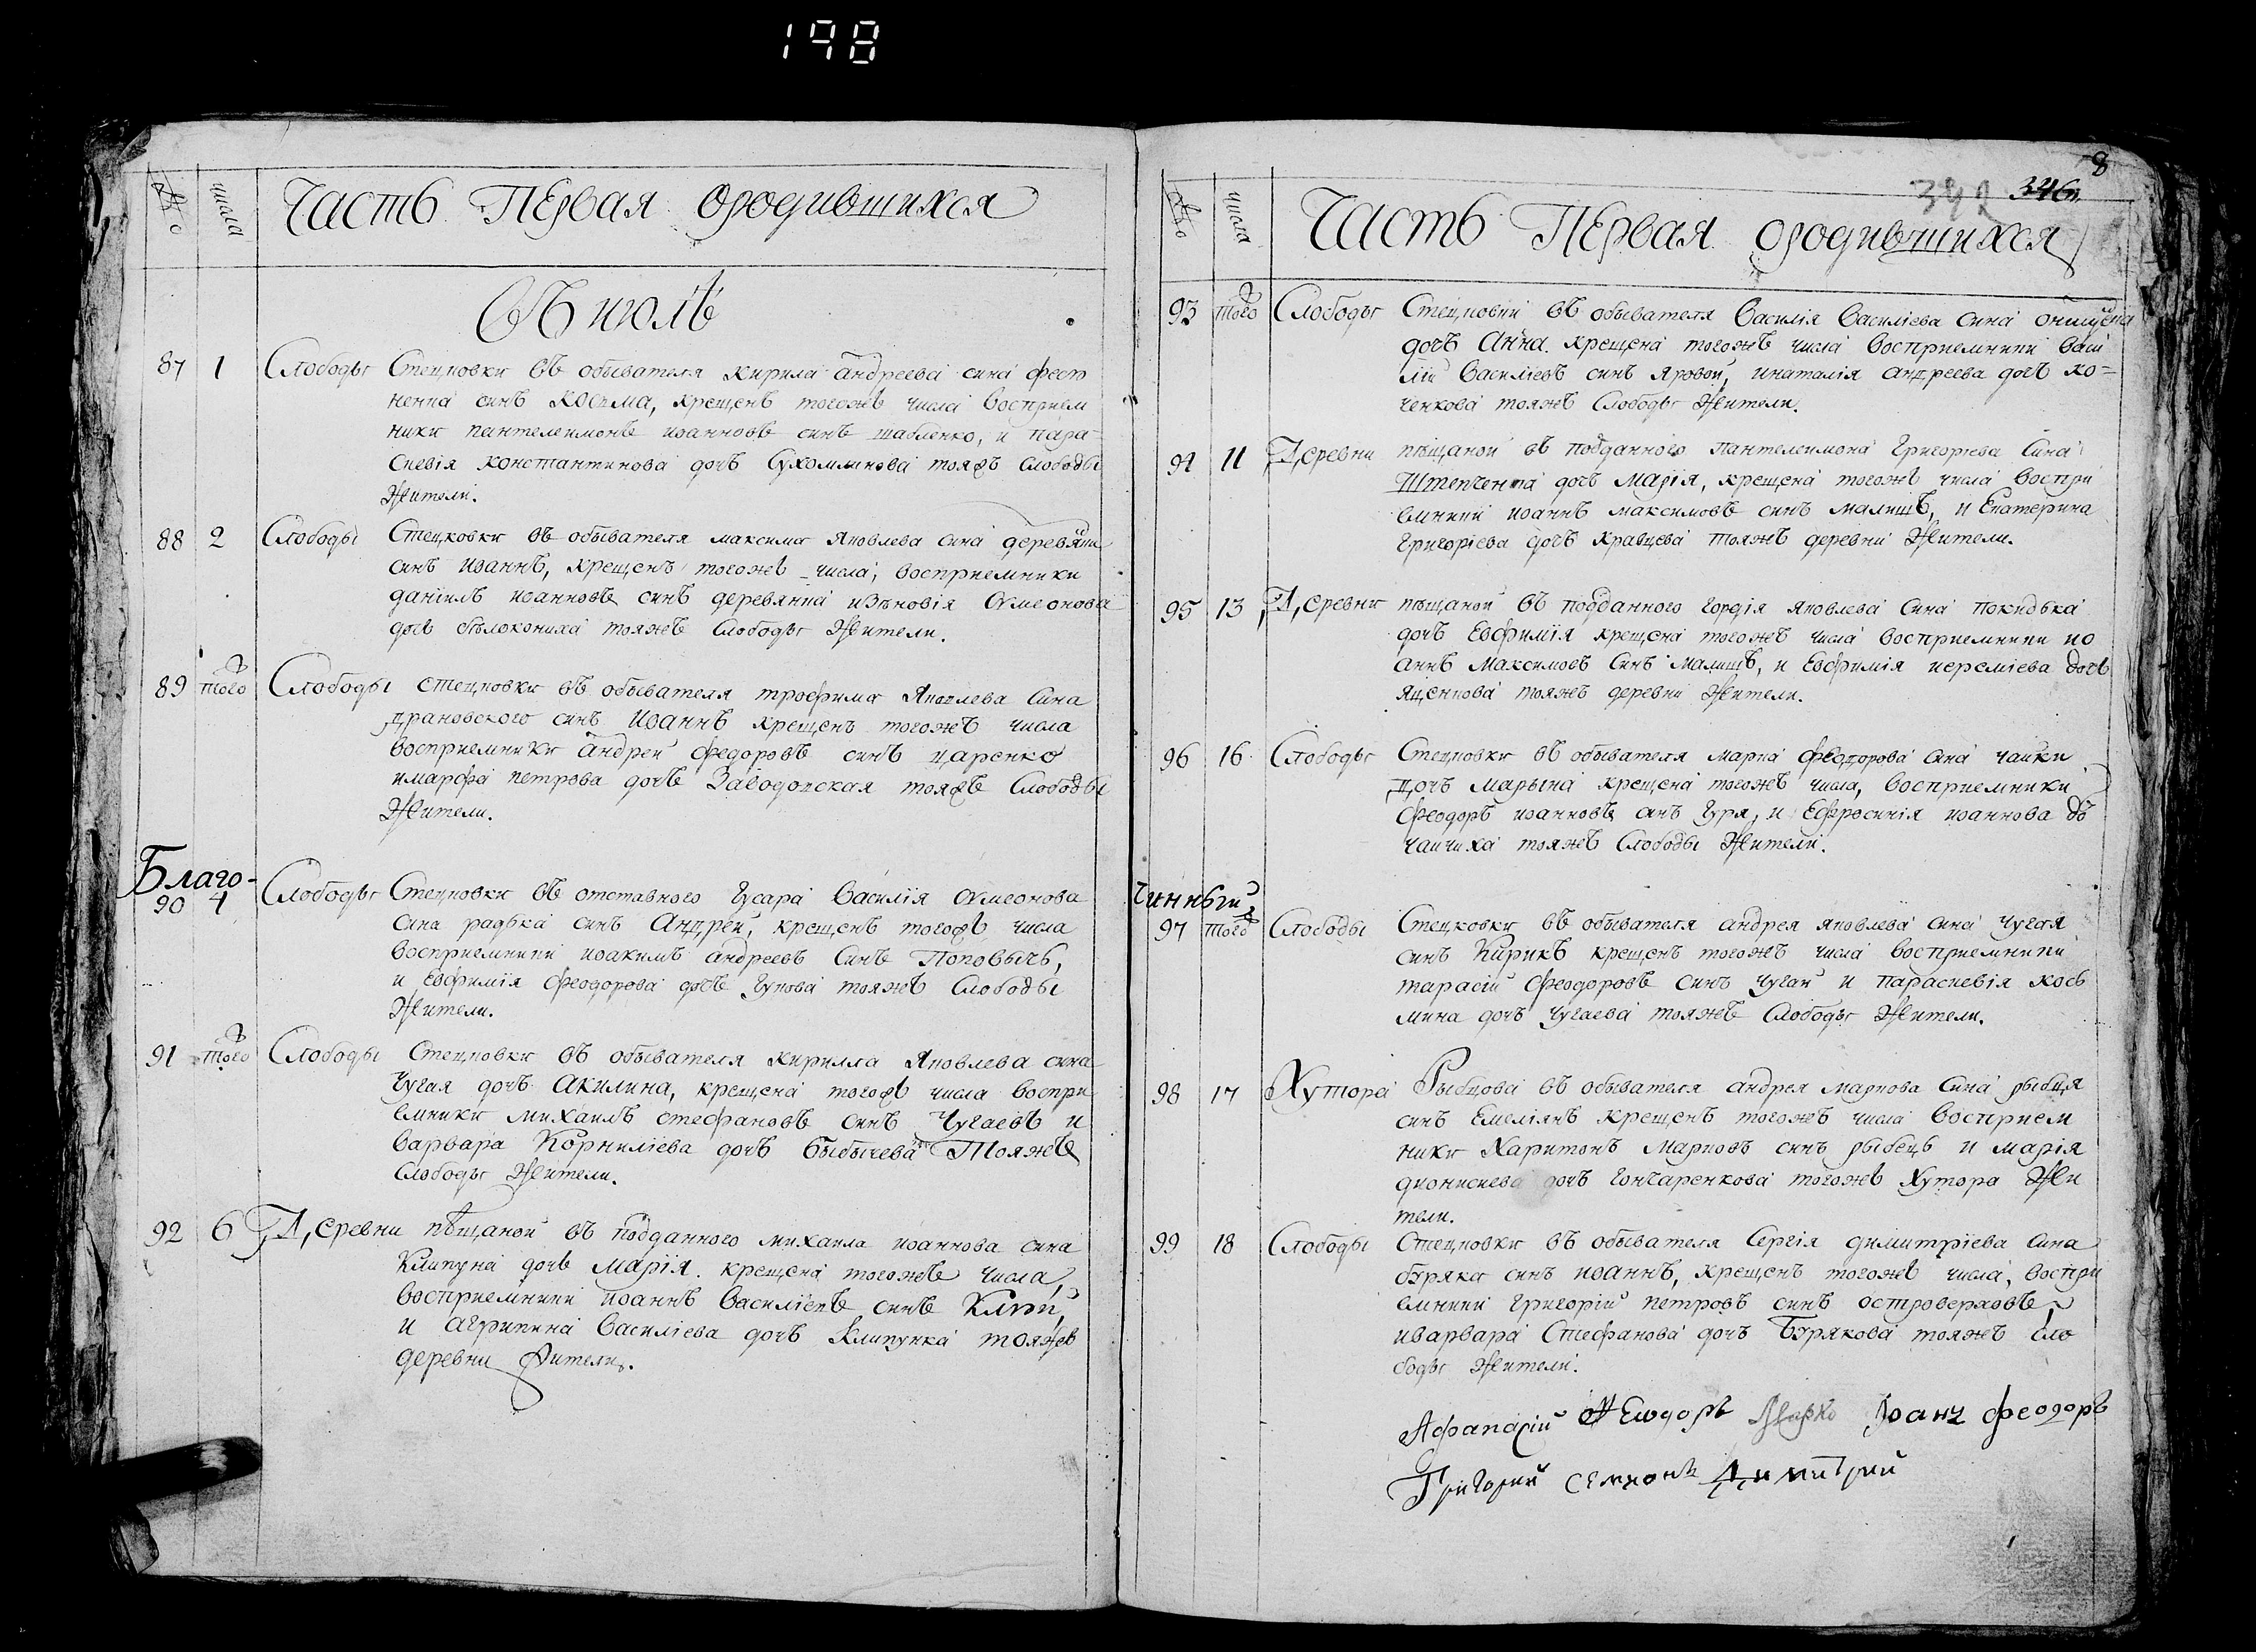 198
№ числа Часть Первая ородившихся
Въ июлѣ
87 1 Слободы Стецковки въ обывателя кирила андреева сина фест
ненка синъ Косьма, крещенъ тогожъ числа восприем
ники пантелеимонъ иоанновъ синъ шабленко, и пара
скевія константинова дочъ Сухомлинова тояжъ слободы
Жители.
88 2 Слободы Стецковки въ обывателя максима Яковлева сина деревянки
синъ Иоаннъ, крещенъ тогожъ числа, восприемники
даніилъ иоанновъ синъ деревянка изѣновія Сумеонова
дочъ бѣлокониха тояжъ Слободы Жители.
89 того Слободы стецковки въ обывателя трофима Яковлева Сина
драновского синъ Иоаннъ крещенъ тогожъ числа
восприемники андрей федоровъ синъ царенко
имарфа петрова дочъ Заводовская тояжъ Слободы
Жители.
Благо-
90 4 Слободы Стецковки въ отставного гусара Василія Сумеонова
сина радька синъ Андрей, крещенъ тогожъ числа
восприемники иоакимъ андреевъ Синъ Поповычъ,
и Евфимія феодорова дочъ Гукова тояжъ Слободы
Жители.
91 того Слободы Стецковки въ обывателя кирилла Яковлева сина
Чугая дочъ Акилина, крещена тогожъ числа воспри
емники михаилъ стефановъ синъ Чугаевъ и
варвара Корниліева дочъ Быбычева Тояжъ
Слободы Жители.
92 6 Деревни пѣщаной въ подданного михаила иоаннова сина
Клипуна дочъ Марія. крещена тогожъ числа,
восприемники Иоаннъ Василіевъ синъ
и агрипина Василіева дочъ Клипунка тояжъ
деревни Жители.
8
342 346
№ числа Часть Первая ородившихся
93 того Слободы Стецковки въ обывателя Василія Василіева сина
дочъ Анна. крещена тогожъ числа восприемники васи
лій Василіевъ синъ Яровой, инаталія андреева дочъ ко-
ченкова тояжъ Слободы Жители.
94 11 Деревни пѣщаной въ подданного Пантелеимона Григоріева Сина
Штепченка дочъ Марія, крещена тогожъ числа воспри
емники иоаннъ максимовъ синъ малишъ, и Екатерина
Григоріева дочъ кравцева тояжъ деревни Жители.
95 13 Деревни пѣщаной въ подданного гордія яковлева Сина Покидька
дочъ Евфимія крещена тогожъ числа восприемники ио
аннъ Максимовъ Синъ Малишъ, и Евфимія иереміева дочъ
Яценкова тояжъ деревни Жители.
96 16 Слободы Стецковки въ обывателя марка феодорова сина чайки
дочъ Марына крещена тогожъ числа, восприемники
феодоръ иоанновъ синъ Гуря, и Ефросинія иоаннова дъ
чаичиха тояжъ Слободы Жители.
Чинныи
97 того Слободы Стецковки въ обывателя андрея яковлева сина Чугая
синъ Кирикъ крещенъ тогожъ числа восприемники
тарасій Феодоровъ синъ Чугай и параскевія кось
мина дочъ Чугаева тояжъ Слободы Жители.
98 17 Хутора Рыбцова въ обывателя андрея маркова Сина рыбця
синъ Емеліянъ крещенъ тогожъ числа восприем
ники Харитонъ Марковъ синъ рыбецъ и марія
дионисиева дочъ гончаренкова тогожъ Хутора Жи
тели.
99 18 Слободы Стецковки въ обывателя Сергія димитріева Сина
буряка синъ иоаннъ, крещенъ тогожъ числа, воспри
емники григорій петровъ синъ островерховъ,
иварвара Стефанова дочъ Бурякова тояжъ Сло
боды Жители.
Афанасій Феодоръ Марко Іоанъ феодоръ
Григорий семионъ Димитрий